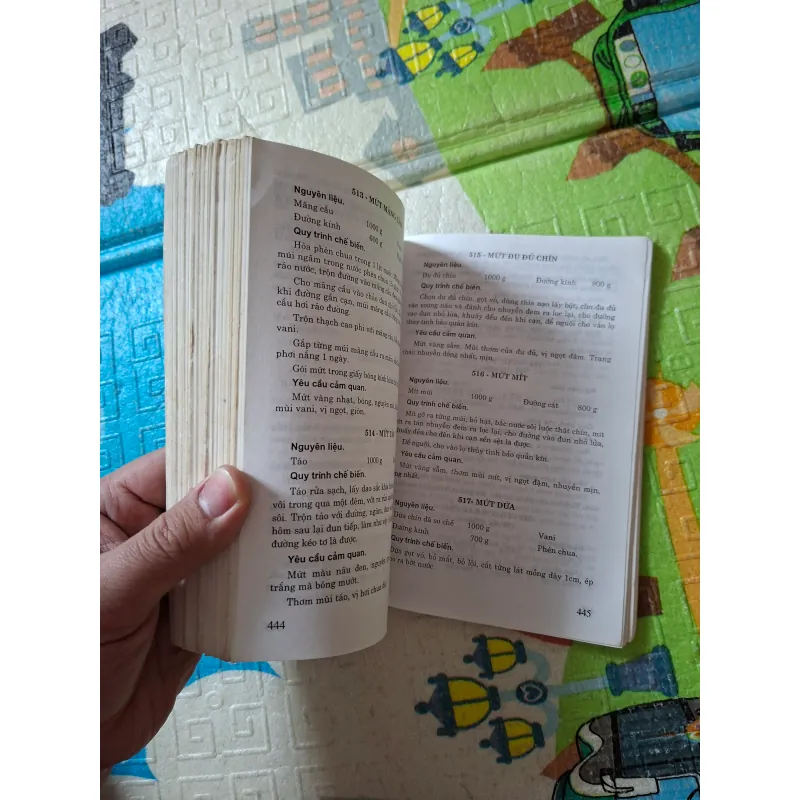 513 - MỨT MÃNG
Nguyên liệu.
Mãng cầu 1000 g
Đường kính 600 g
Quy trình chế biến.
Hòa phèn chua trong 1 lít
múi ngâm trong nước phèn chua
ráo nước, trộn đường vào mãng cầu
Cho mãng cầu vào chảo
khi đường gần cạn, múi mãng
cầu hơi ráo đường.
Trộn thạch cao phi với mãng cầu
vani.
Gắp từng múi mãng cầu ra
phơi nắng 1 ngày.
Gói mứt trong giấy bóng kính
Yêu cầu cảm quan.
Mứt vàng nhạt, bóng, nguyên
mùi vani, vị ngọt, giòn.
514 - MỨT
Nguyên liệu.
Táo 1000 g
Quy trình chế biến.
Táo rửa sạch, lấy dao sắc
vôi trong qua một đêm, vớt ra
sôi. Trộn táo với đường, ngâm,
hôm sau lại đun tiếp, làm như
đường kéo tơ là được.
Yêu cầu cảm quan.
Mứt màu nâu đen, nguyên
trắng mà bóng mướt.
Thơm mùi táo, vị hơi chua
444
515 - MỨT ĐU ĐỦ CHÍN
Nguyên liệu.
Đu đủ chín 1000 g Đường kính 800 g
Quy trình chế biến.
Chọn đu đủ chín, gọt vỏ, dùng thìa nạo lấy bột, cho đu đủ
vào xoong nấu và đánh cho nhuyễn đem ra lọc lại, cho đường
vào đun nhỏ lửa, khuấy đều đến khi cạn, để nguội cho vào lọ
thủy tinh bảo quản kín.
Yêu cầu cảm quan.
Mứt vàng sẫm. Mùi thơm của đu đủ, vị ngọt đậm. Trạng
thái nhuyễn đồng nhất, mịn.
516 - MỨT MÍT
Nguyên liệu.
Mít múi 1000 g Đường cát 800 g
Quy trình chế biến.
Mít gỡ ra từng múi, bỏ hạt, bắc nước sôi luộc thật chín, mít
vớt ra tán nhuyễn đem ra lọc lại, cho đường vào đun nhỏ lửa,
khuấy đều cho đến khi cạn sền sệt là được.
Để nguội, cho vào lọ thủy tinh bảo quản kín.
Yêu cầu cảm quan.
Mứt vàng sẫm, thơm mùi mít, vị ngọt đậm, nhuyễn mịn,
đồng nhất.
517- MỨT DỨA
Nguyên liệu.
Dứa chín đã sơ chế 1000 g Vani
Đường kính 700 g Phèn chua.
Quy trình chế biến.
Dứa gọt vỏ, bỏ mắt, bỏ lõi, cắt từng lát mỏng dày 1cm, ép
ra bớt nước
445